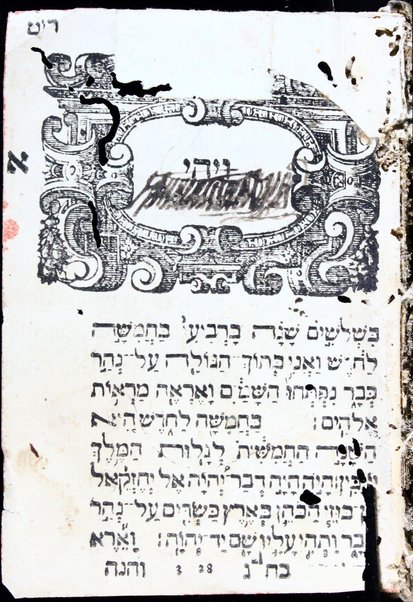 ריט
א
ויהי
בשלשים שנה ברביעי בחמשה
לחדש ואני בתוך הגולה על־נהר
כבר נפתחו השמים ואראה מראות
אלהים׃ בחמשה לחדש היא
השנה החמשית לגלות המלך
היה היה דבר יהוה אל יחזקאל
בן בוזי הכהן בארץ כשדים על־נהר
כבר ותהי עליו שם יד־יהוה׃ וארא
והנה